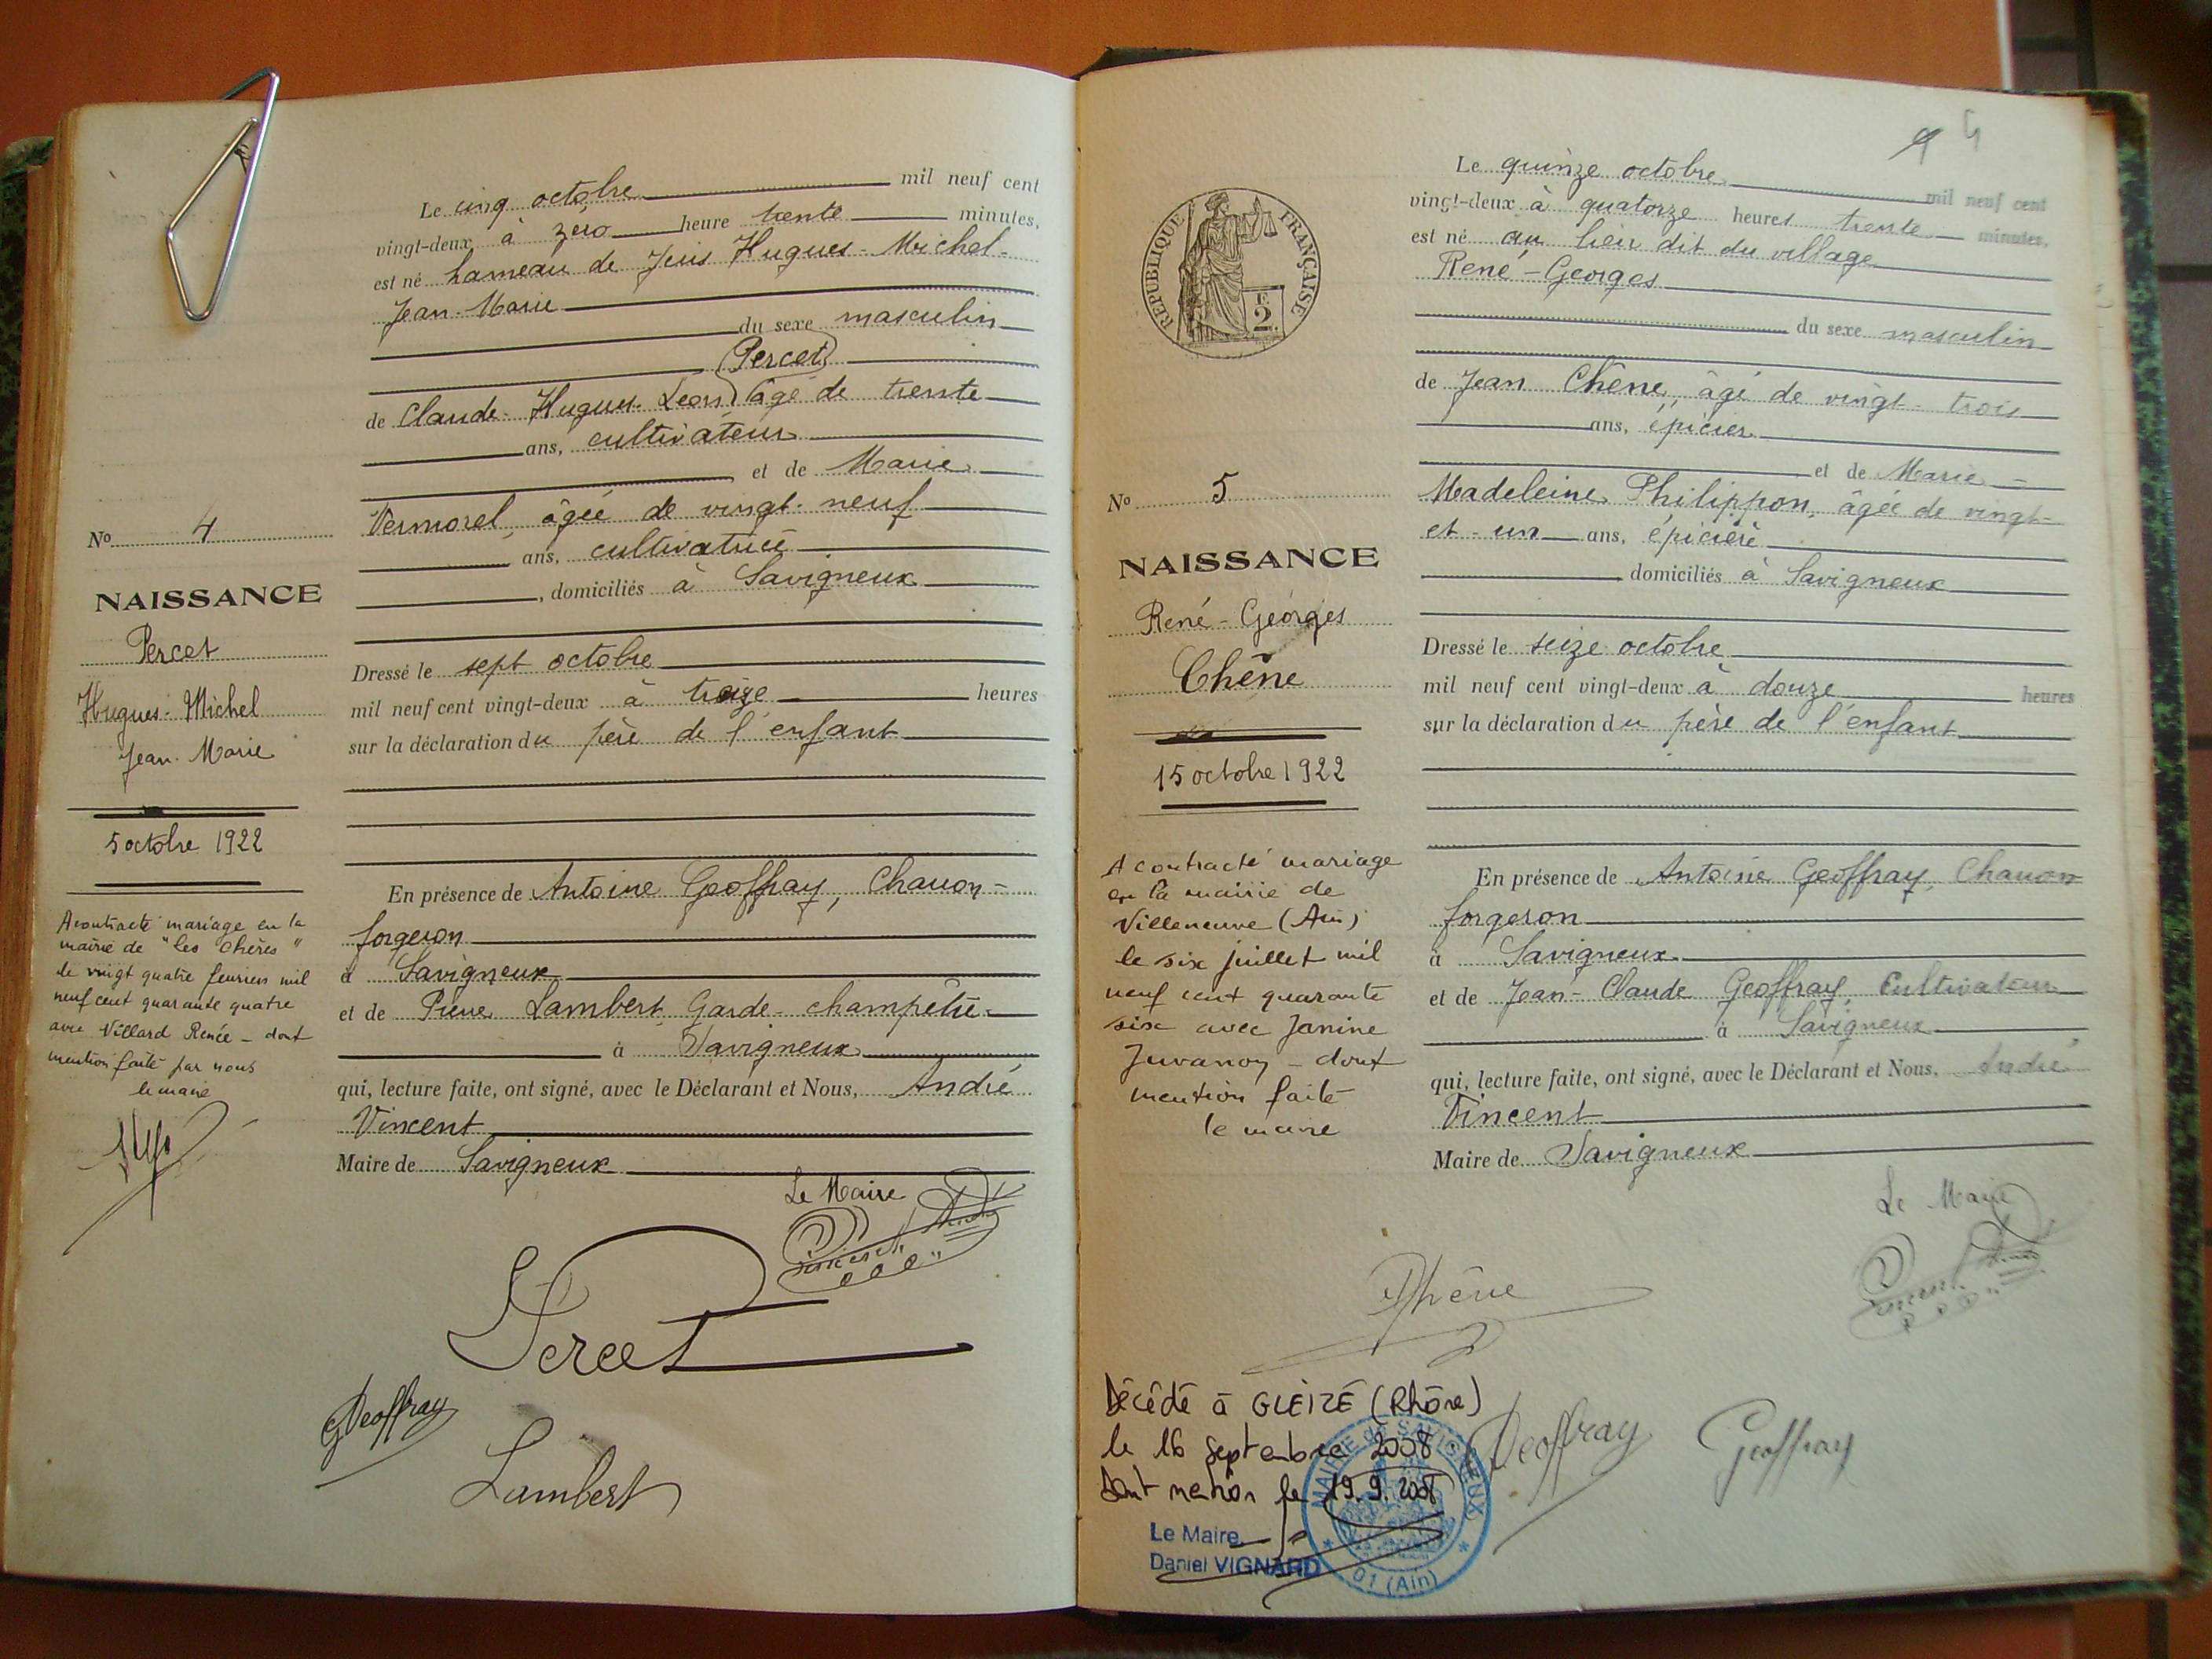 Le cinq octobre mil neuf cent
vingt-deux à zéro heure trente minutes,
est né hameau de Juis Hugues-Michel-
Jean-Marie
du sexe masculin
(Percet)
de Claude-Hugues-Léon âgé de trente
ans, cultivateur
et de Marie
Vermorel, âgée de vingt-neuf
ans, cultivatrice
, domiciliés à Savigneux
Dressé le sept octobre
mil neuf cent vingt-deux à treize heures
sur la déclaration du père de l'enfant
En présence de Antoine Geoffray, Charron-
forgeron
à Savigneux
et de Pierre Lambert Garde-champêtre
à Savigneux
qui, lecture faite, ont signé, avec le Déclarant et Nous, André
Vincent
Maire de Savigneux
Le Maire
Vincent André
Percet
Geoffray
Lambert
No 4
NAISSANCE
Percet
Hugues-Michel
Jean-Marie
5 octobre 1922
A contracté mariage en la
mairie de "les Chères"
le vingt quatre fevrier mil
neuf cent quarante quatre
avec Villard Renée - dont
mention faite par nous
le maire
4
RÉPUBLIQUE FRANÇAISE
F.
2
Le quinze octobre mil neuf cent
vingt-deux à quatorze heures trente minutes,
est né au lieu dit du village
René-Georges
du sexe masculin
de Jean Chêne, âgé de vingt-trois
ans, épicier
et de Marie-
Madeleine Philippon, âgée de vingt-
et-un ans, épicière
domiciliés à Savigneux
Dressé le seize octobre
mil neuf cent vingt-deux à douze heures
sur la déclaration du père de l'enfant
En présence de Antoine Geoffray, Charron
forgeron
à Savigneux
et de Jean-Claude Geoffray, Cultivateur
à Savigneux
qui, lecture faite, ont signé, avec le Déclarant et Nous, André
Vincent
Maire de Savigneux
Le Maire
Vincent André
Chêne
Geoffray
Geoffray
No 5
NAISSANCE
René-Georges
Chêne
15 octobre 1922
A contracté mariage
en la mairie de
Villeneuve (Ain)
le six juillet mil
neuf cent quarante
six avec Janine
Juvanon - dont
mention faite
le maire
Décédé à GLEIZÉ (Rhône)
le 16 Septembre 2008
Dont mention le 19.9.2008
Le Maire
Daniel VIGNARD
MAIRIE de SAVIGNEUX
01 (Ain)